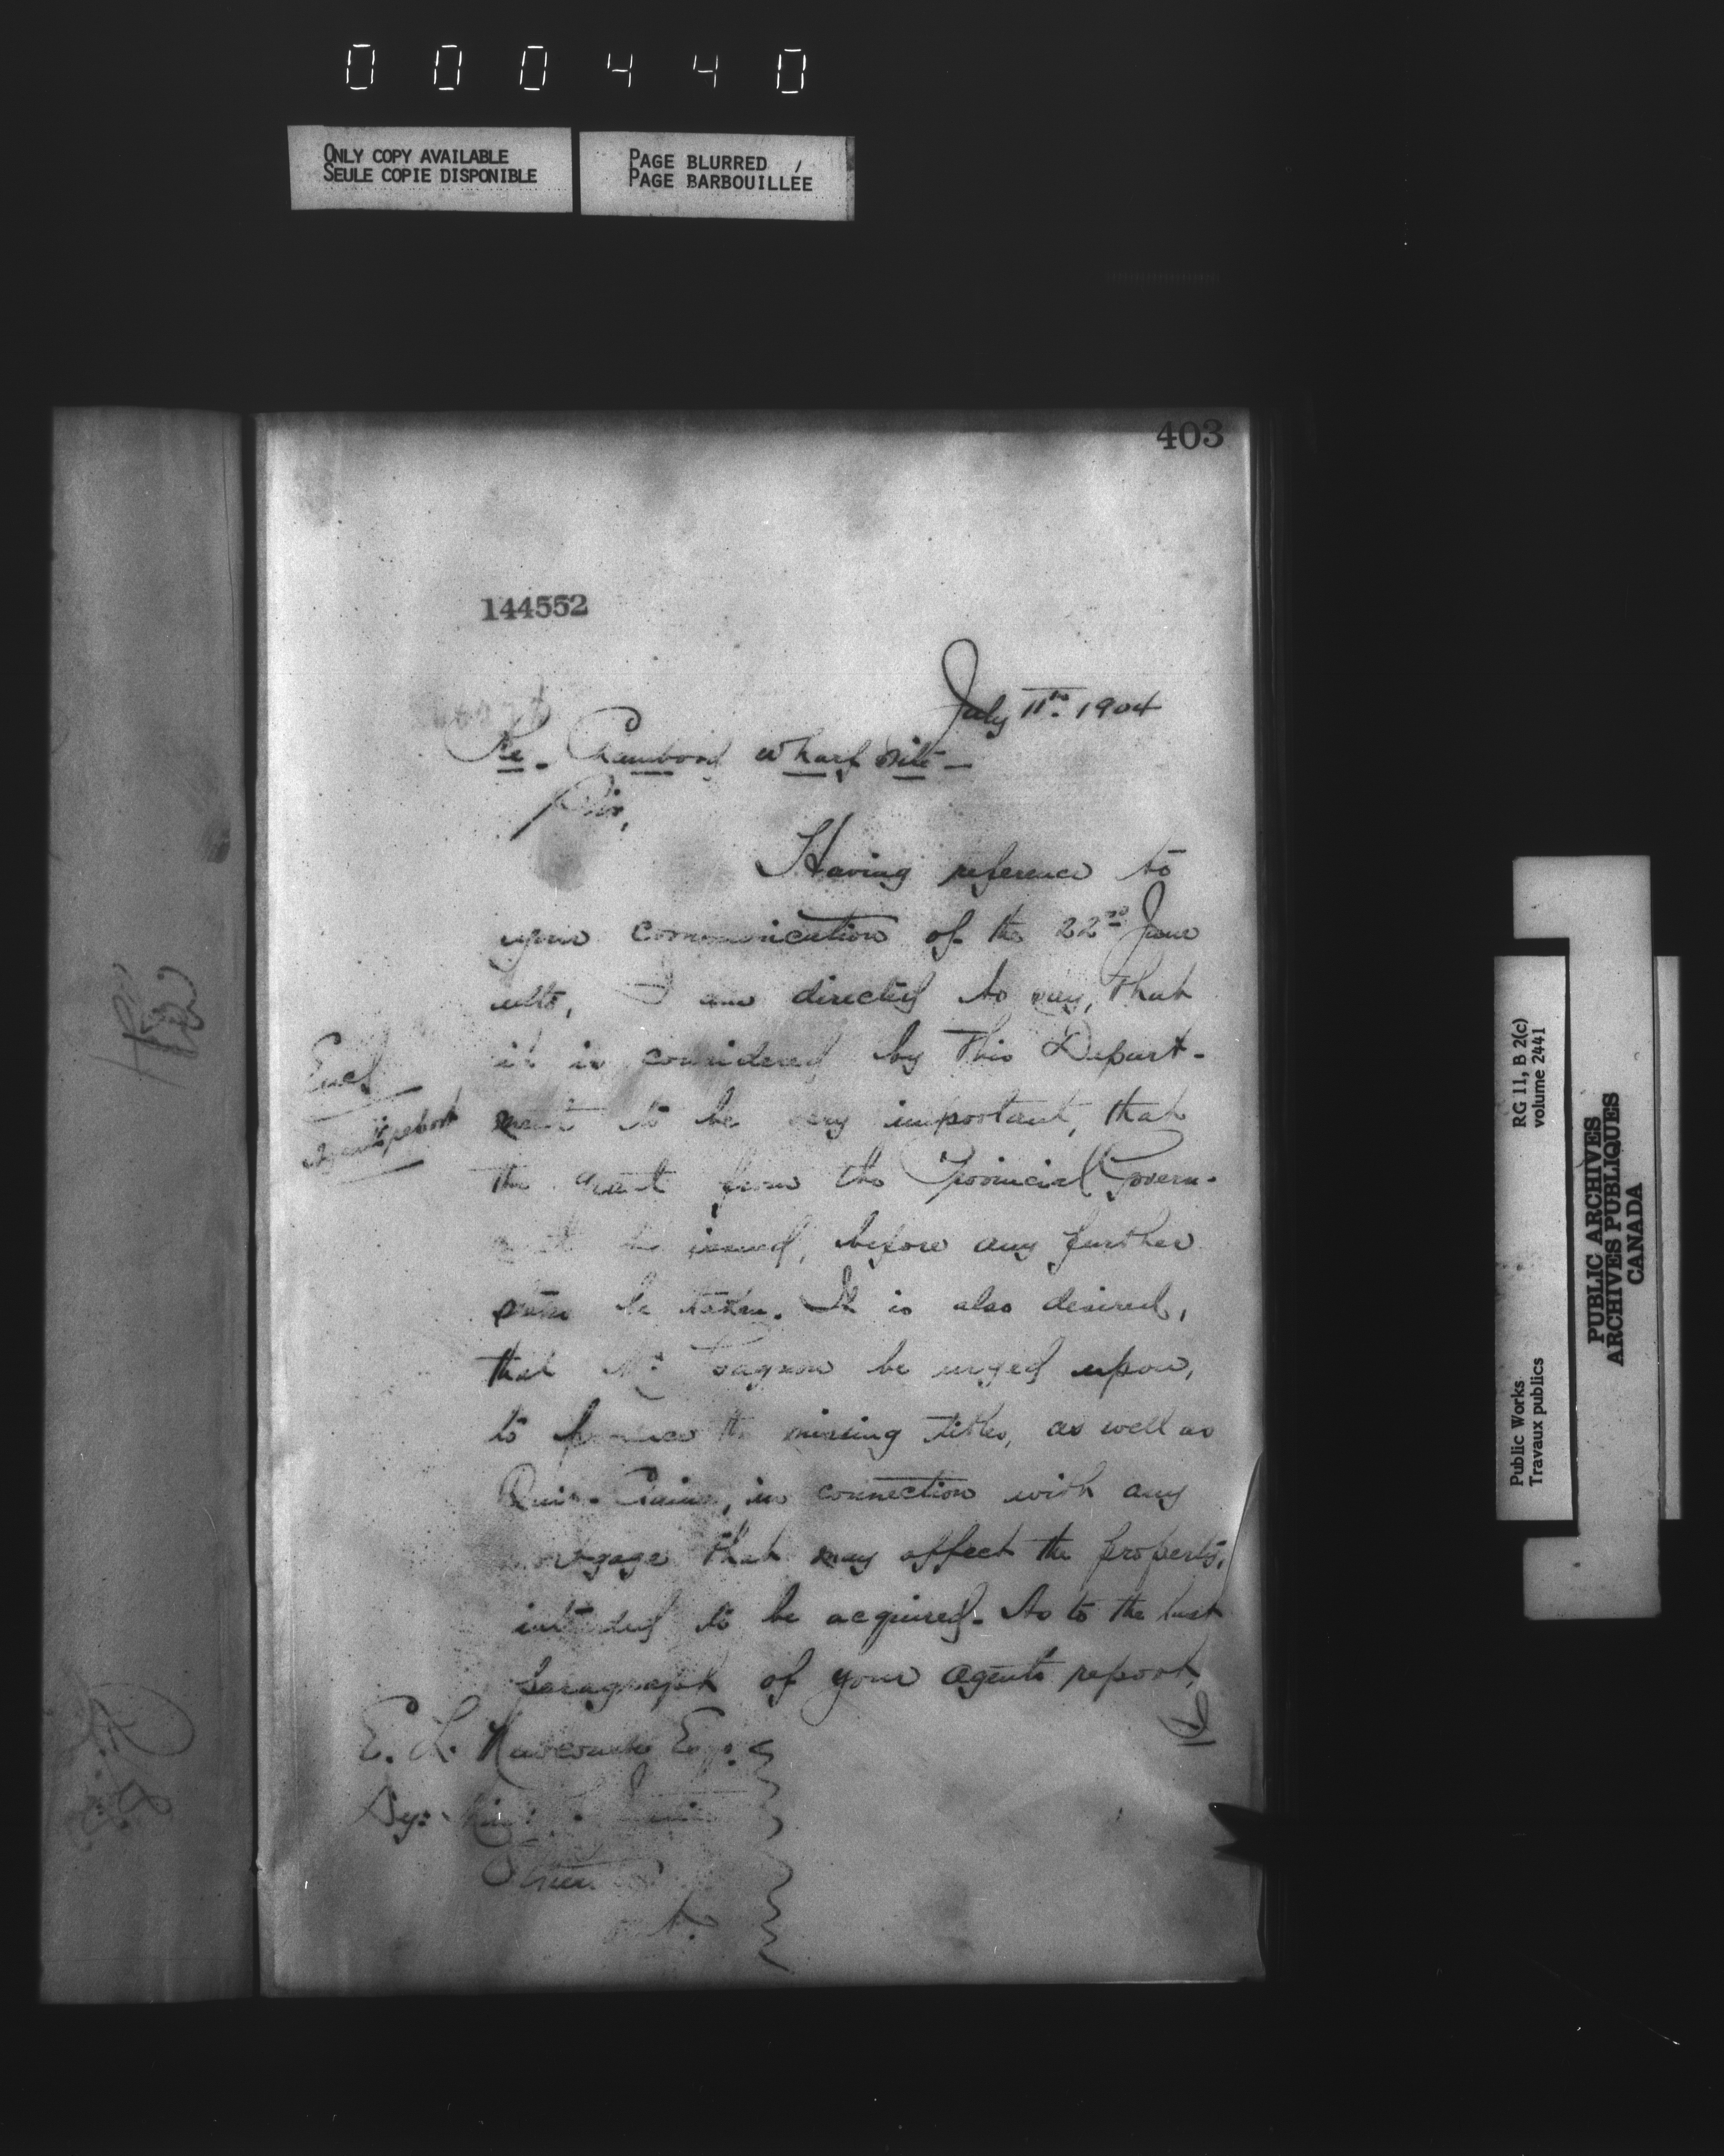 000440
ONLY COPY AVAILABLE
SEULE COPIE DISPONIBLE
PAGE BLURRED
PAGE BARBOUILLÉE
403
144552
July 11th. 1904
Re. Chambord Wharf site -
Sir,
Having reference to
your communication of the 22nd June
ulto, I am directed to say, that
it is considered by this Depart-
ment to be very important, that
the grant from the Provincial Govern-
ment be issued, before any further
steps be taken. It is also desired,
that Mr. be urged upon,
to the missing titles, as well as
Quit-Claims, in connection with any
mortgage that may affect the property,
intended to be acquired. As to the last
paragraph of your agent's report,
I
Encl
agent's report
E. L. Newcombe Esq.
Dy: Min:
Ottawa
Ont.
RG 11, B 2(c)
volume 2441
Public Works
Travaux publics
PUBLIC ARCHIVES
ARCHIVES PUBLIQUES
CANADA